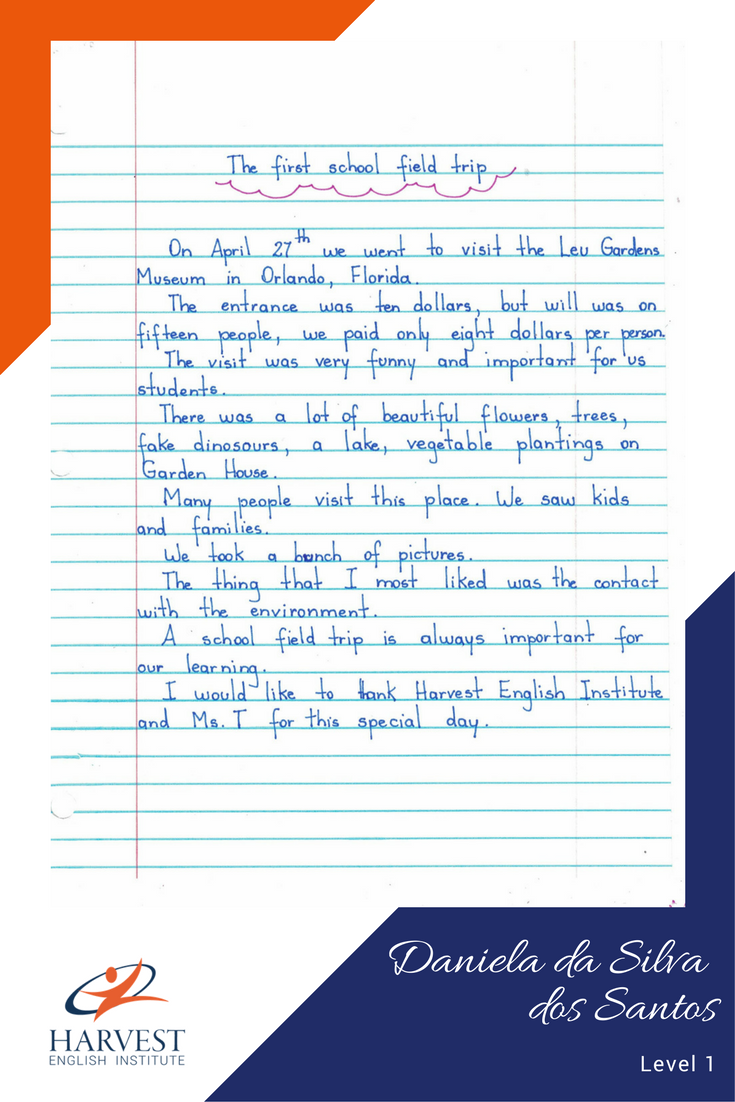 The first school field trip
On April 27th we went to visit the Leu Gardens
Museum in Orlando, Florida.
The entrance was ten dollars, but will was on
fifteen people, we paid only eight dollars per person.
The visit was very funny and important for us
students.
There was a lot of beautiful flowers, trees,
fake dinosours, a lake, vegetable plantings on
Garden House.
Many people visit this place. We saw kids
and families.
We took a bunch of pictures.
The thing that I most liked was the contact
with the environment.
A school field trip is always important for
our learning.
I would like to thank Harvest English Institute
and Ms. T for this special day.
Daniela da Silva
dos Santos
Level 1
HARVEST
ENGLISH INSTITUTE